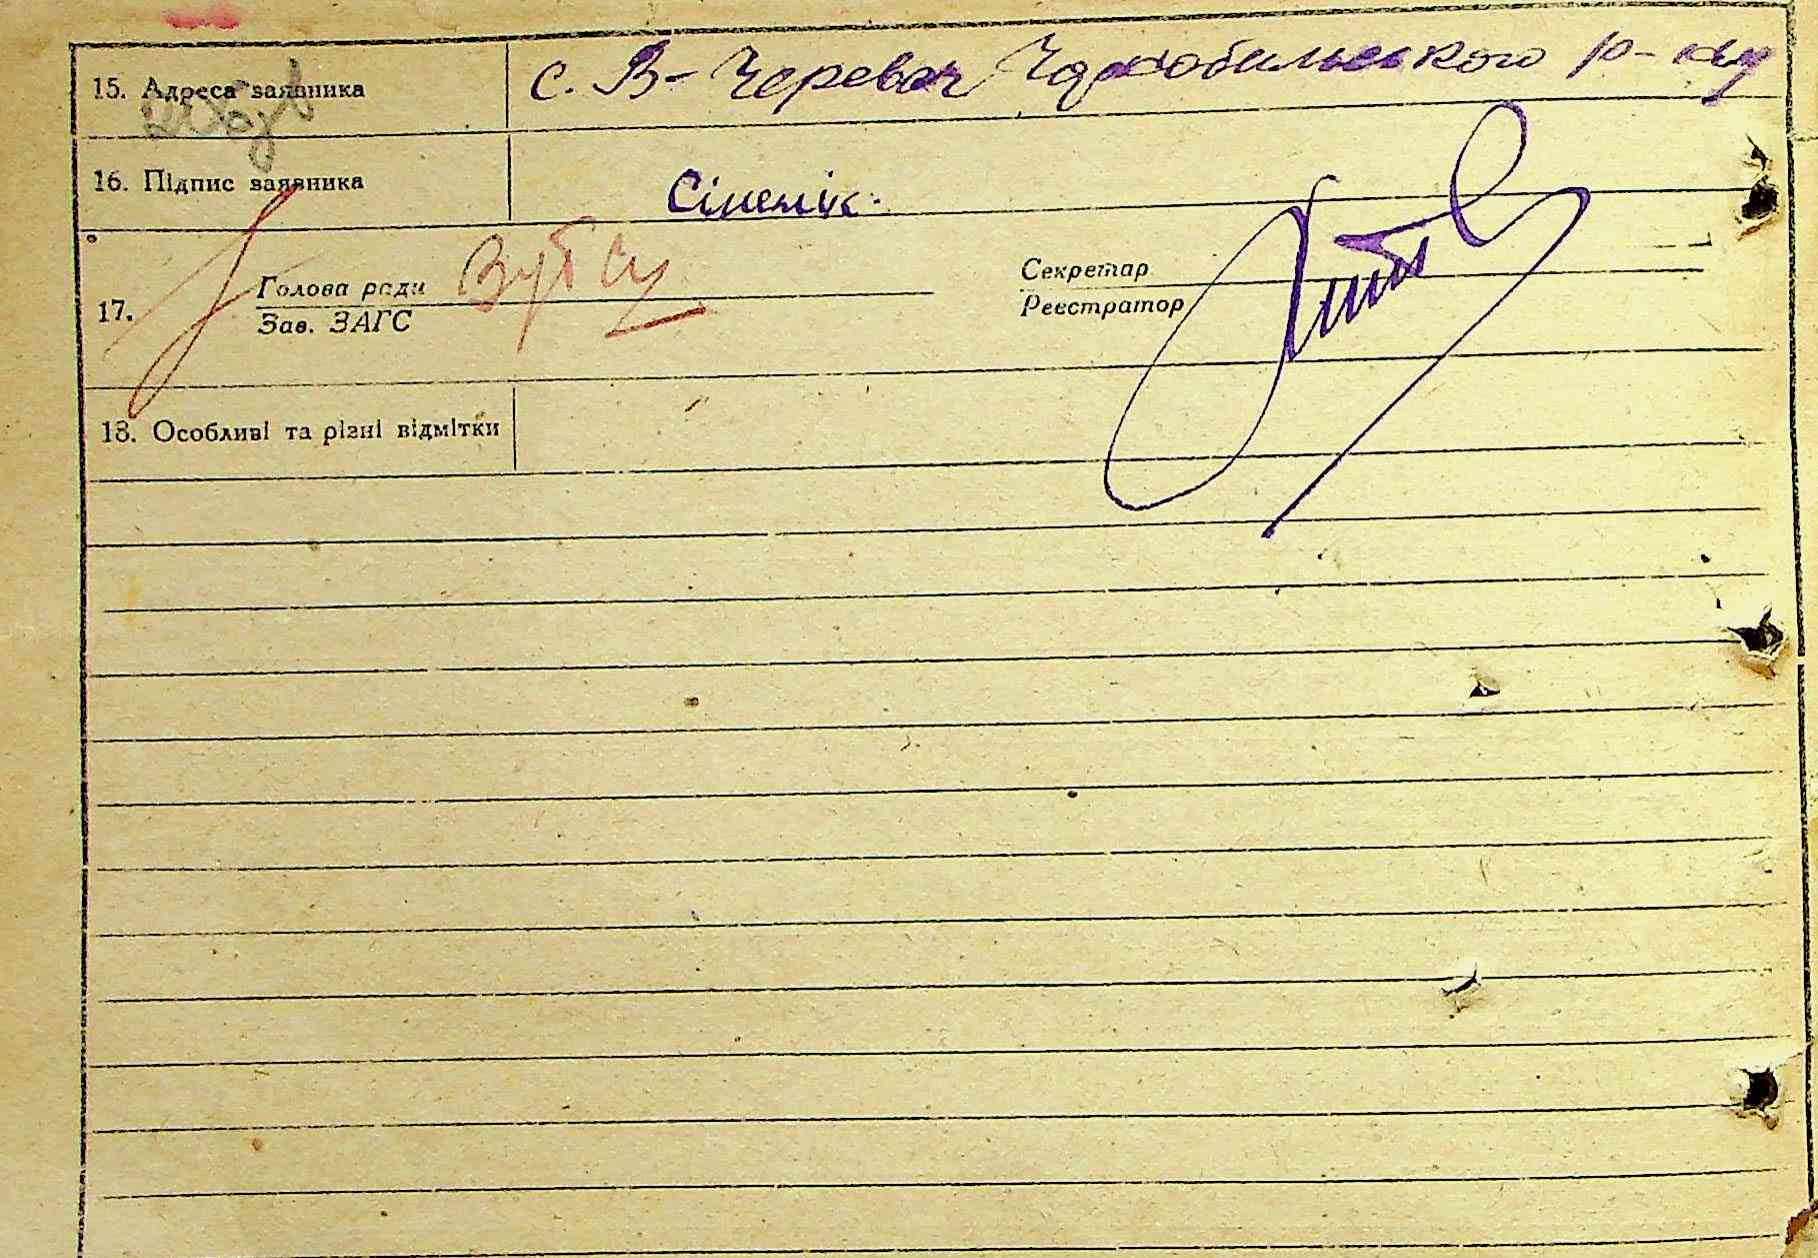 15. Адреса заявника с. В-Черевач Чорнобильського р-ну
16. Підпис заявника
17. Голова ради
Зав. ЗАГС
Секретар
Реєстратор
18. Особливі та різні відмітки